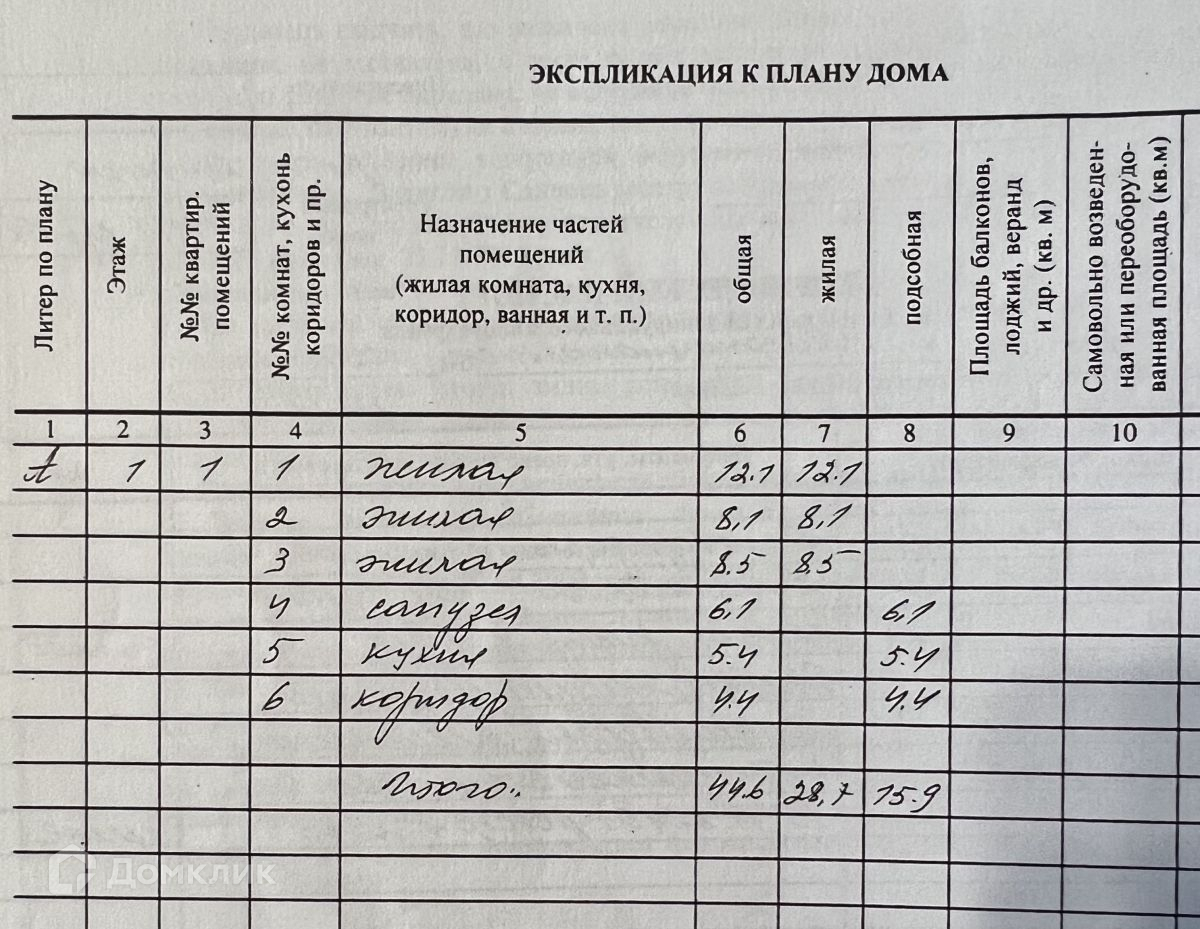 ЭКСПЛИКАЦИЯ К ПЛАНУ ДОМА
Литер по плану
Этаж
№№ квартир.
помещений
№№ комнат, кухонь
коридоров и пр.
Назначение частей
помещений
(жилая комната, кухня,
коридор, ванная и т. п.)
общая
жилая
подсобная
Площадь балконов,
лоджий, веранд
и др. (кв. м)
Самовольно возведен-
ная или переоборудо-
ванная площадь (кв.м)
1 2 3 4 5 6 7 8 9 10
А 1 1 1 жилая 12.1 12.1
2 жилая 8,1 8,1
3 жилая 8.5 8.5
4 санузел 6,1 6,1
5 кухня 5.4 5.4
6 коридор 4.4 4.4
Итого: 44.6 28,7 15.9
Домклик